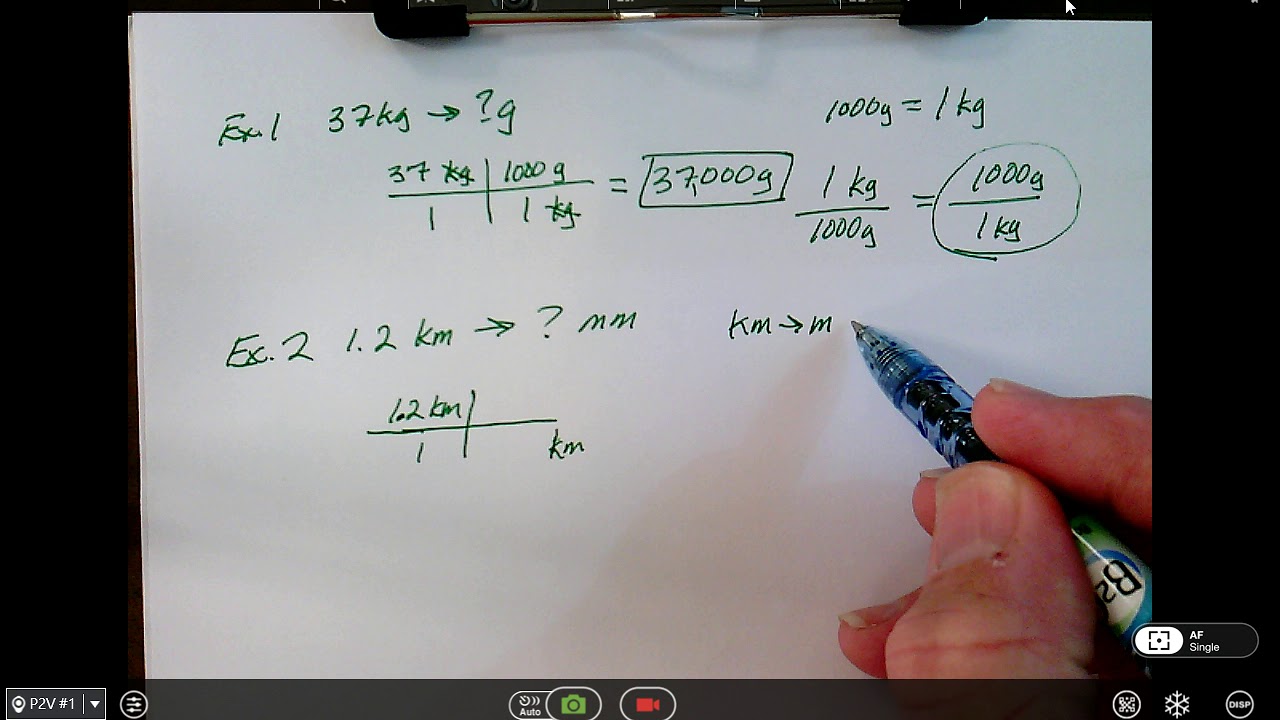 Ex.1 37kg → ?g 1000g = 1kg
37 kg | 1000g = 37,000g 1 kg = 1000g
1 | 1 kg 1000g 1kg
Ex.2 1.2 km → ? mm km → m
1.2 km |
1 | km
BS
AF
Single
P2V #1
Auto
DISP